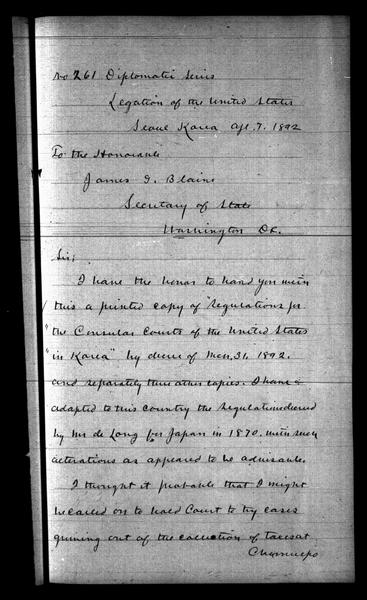 No 261 Diplomatic Series
Legation of the United States
Seoul Korea Apl. 7. 1892
To the Honorable
James G. Blaine
Secretary of State
Washington DC.
Sir:
I have the honor to hand you with
this a printed copy of "Regulations for
"the Consular Courts of the United States
"in Korea" by decree of Mch. 31. 1892.
and separately three other copies. I have
adapted to this country the Regulations decreed
by Mr de Long for Japan in 1870. with such
alterations as appeared to be advisable.
I thought it probable that I might
be called on to hold Court to try cases
growing out of the collection of taxes at
Chemulpo